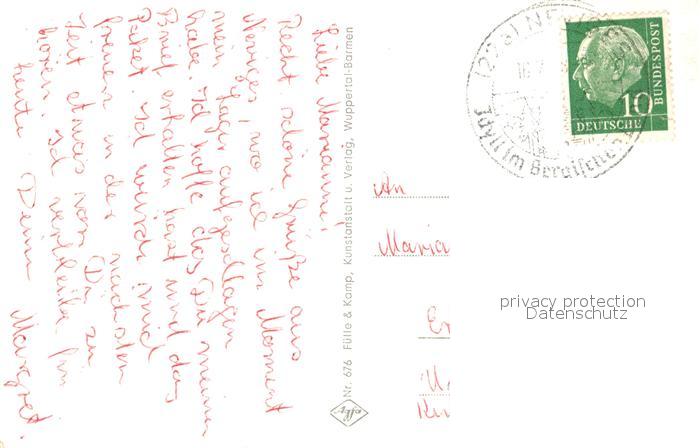 Liebe Marianne!
Recht schöne Grüße aus
Neviges, wo ich im Moment
mein Lager aufgeschlagen
habe. Ich hoffe das Du meinen
Brief erhalten hast und das
Paket. Ich würde mich
freuen in der nächsten
Zeit etwas von Dir zu
hören. Ich verbleibe für
heute Deine Margret.
Nr. 676 Fülle & Kamp, Kunstanstalt u. Verlag, Wuppertal-Barmen
An
Maria
(22a) NEVIGES
Idyll im Bergischen
10
DEUTSCHE
BUNDESPOST
privacy protection
Datenschutz